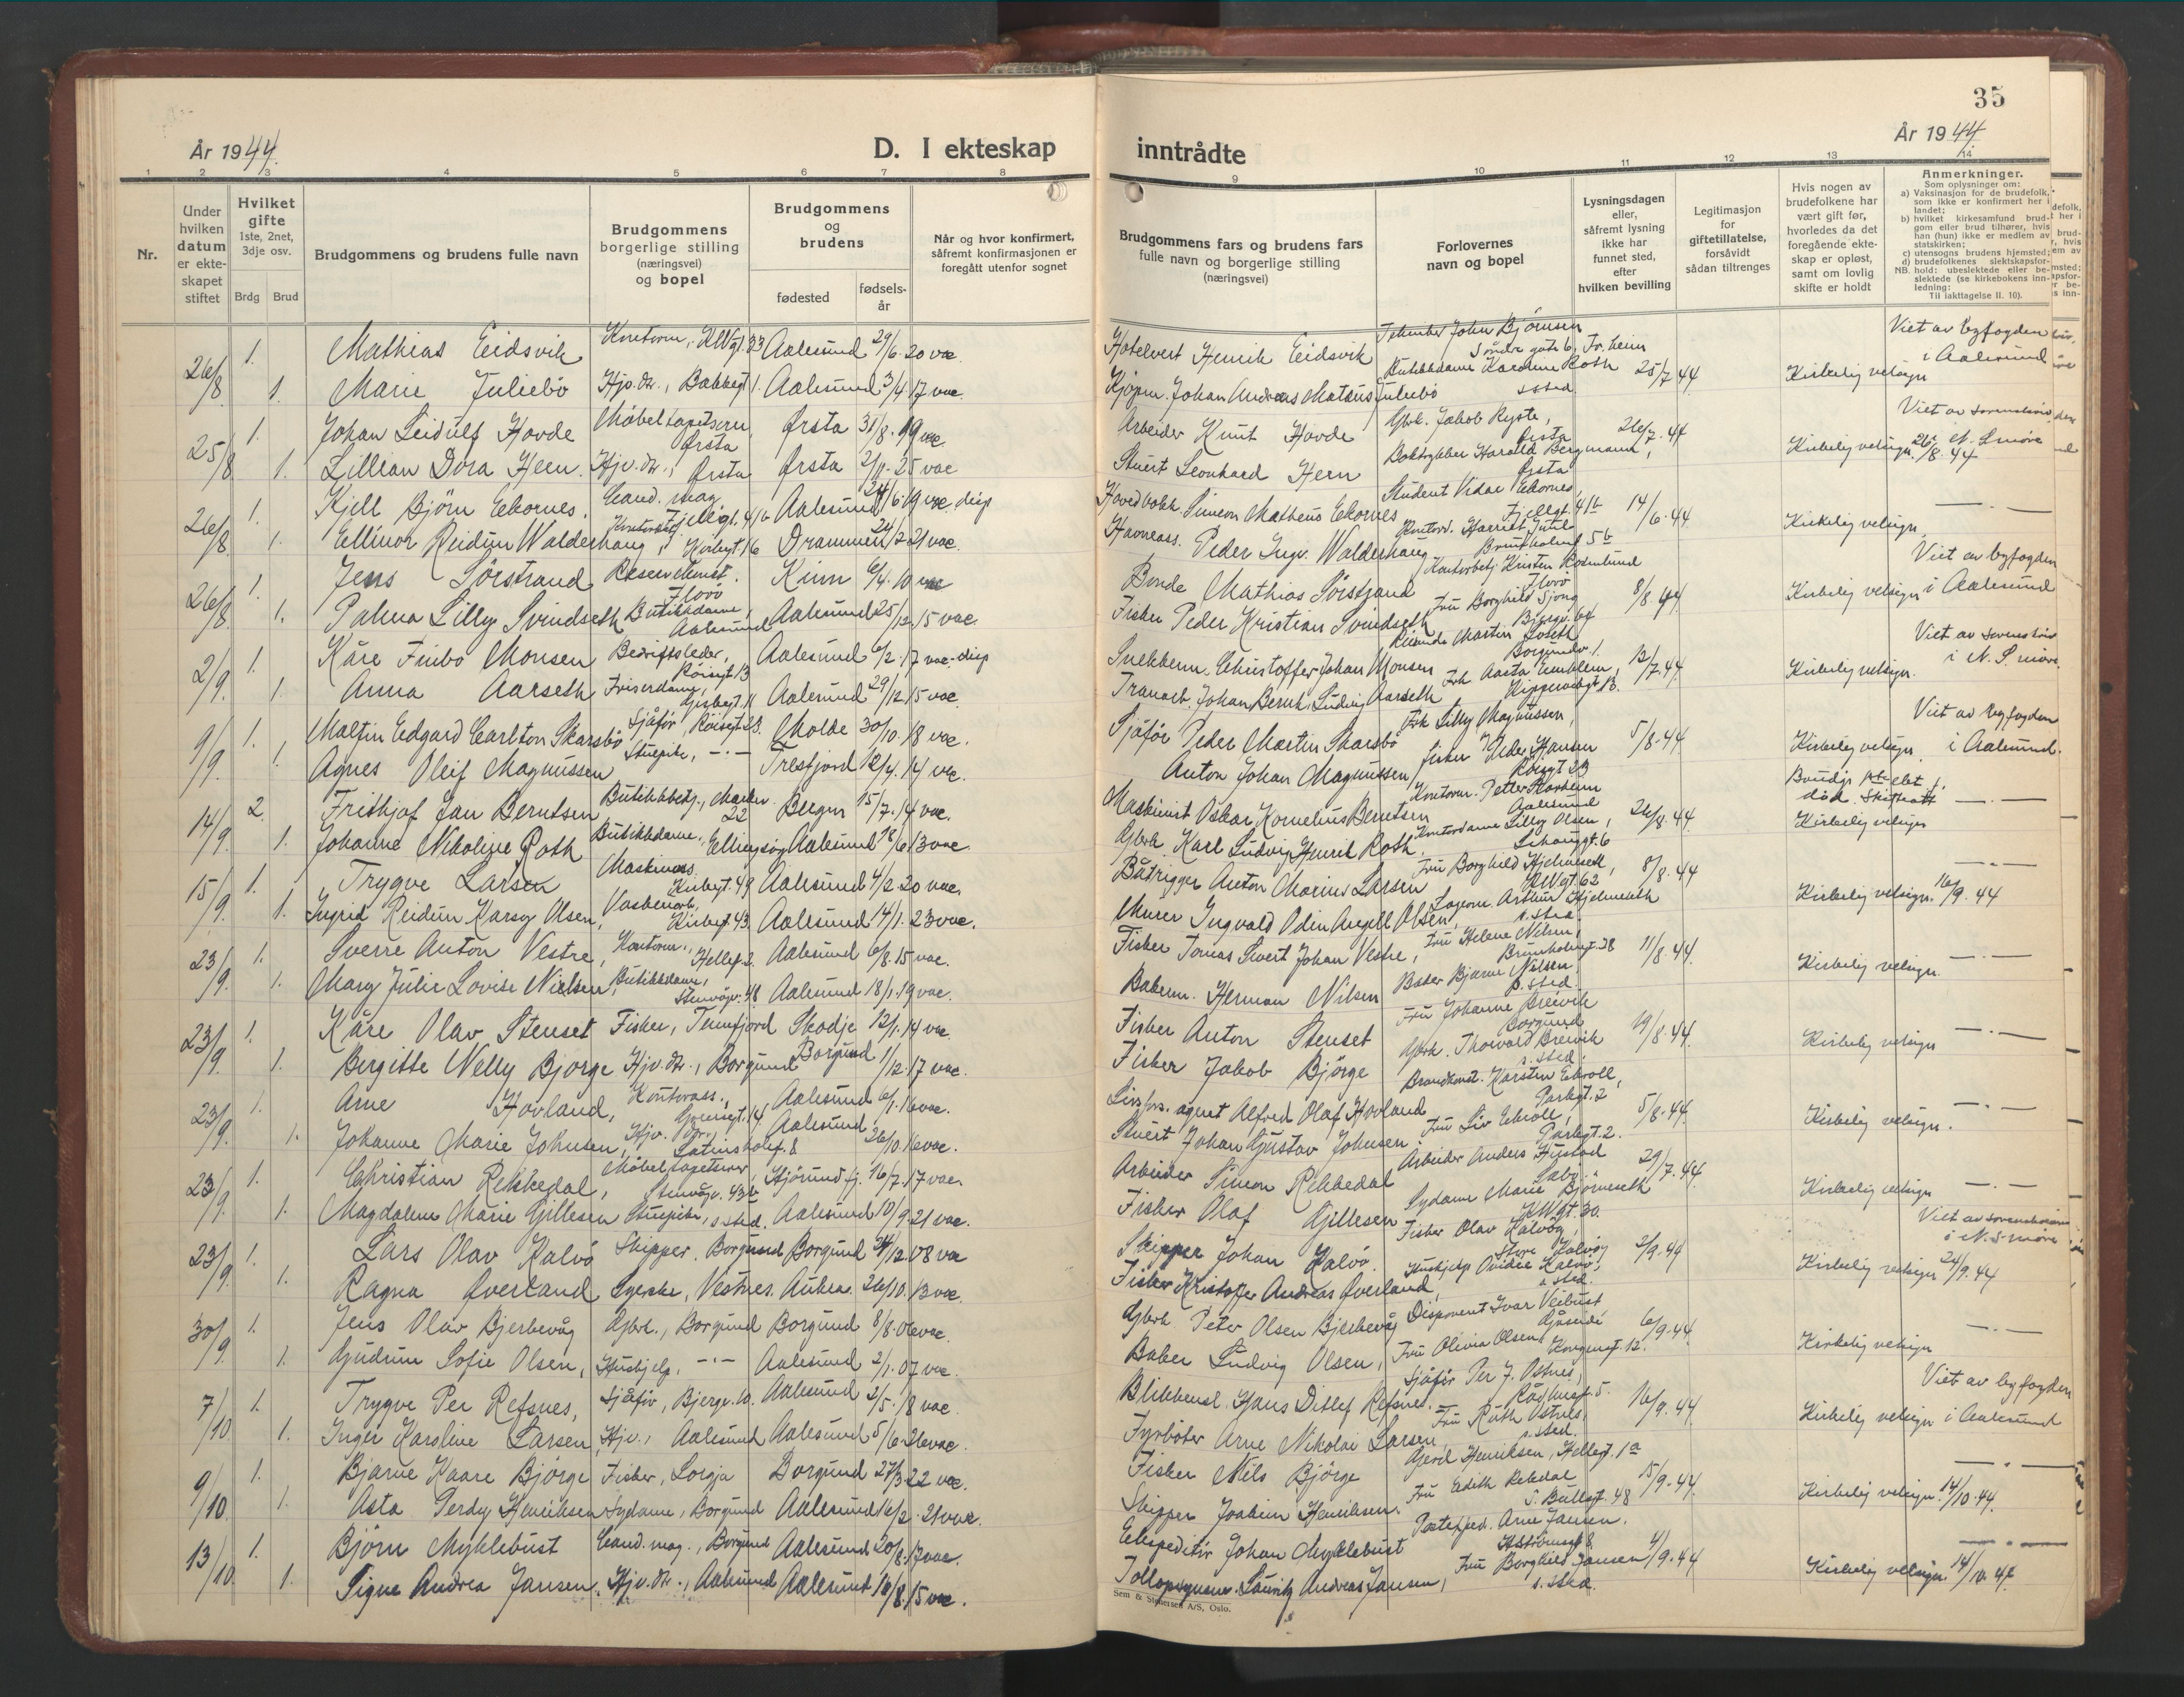 År 1944.
D. I ekteskap
1 2 3 4 5 6 7 8
Nr.
Under hvilken datum er ekteskapet stiftet
Hvilket gifte
1ste, 2net, 3dje osv.
Brdg Brud
Brudgommens og brudens fulle navn
Brudgommens borgerlige stilling (næringsvei) og bopel
Brudgommens og brudens
fødested
fødselsår
Når og hvor konfirmert, såfremt konfirmasjonen er foregått utenfor sognet
26/8 1. Mathias Eidsvik Aalesund 29/6.20 vac.
1. Marie Juliebö Hjv. dtr., Bakkegt 1. Aalesund 3/4.17 vac.
25/8 1. Johan Leidulf Hovde Möbeltapetserer, Ørsta Ørsta 31/8.19 vac
1. Lillian Dora Heen. Hjv. dtr., Ørsta Ørsta 2/11.25 vac
26/8 1. Kjell Björn Ekornes. Cand. mag. Fjellgt. 41b Aalesund 24/6.19 vac. disp
1. Ellinor Reidun Walderhaug, Kirkegt. 16 Drammen 24/2.21 vac.
26/8 1. Jens Sörstrand Florö Kinn 6/4.10 vac
1. Palma Lilly Svindseth Butikkdame, Aalesund Aalesund 25/12.15 vac.
2/9. 1. Kåre Finbo Monsen Bedriftsleder, Röisegt 13 Aalesund 6/2.17 vac. disp
1. Anna Aarseth Friserdame, Aalesund 29/12.15 vac.
9/9. 1. Malfin Edgard Carlton Skarsbö Sjåför, Röisegt. 23. Molde 30/10.18 vac.
1. Agnes Oleif Magnussen Stuepike, -"- Tresfjord 12/4.14 vac.
14/9. 2. Frithjof Jan Berntsen Butikkbetj., Bergen 15/7.14 vac.
1. Johanne Nikoline Roth Butikkdame, Ellingsöy Aalesund 18/6.13 vac
15/9. 1. Trygve Larsen Maskinass. Kirkegt. 49 Aalesund 4/2.20 vac.
1. Ingrid Reidun Karsy Olsen, Kirkegt. 43. Aalesund 14/1.23 vac.
23/9. 1. Sverre Anton Vestre, Kontorm., Hellegt. 2. Aalesund 6/8.15 vac.
1. Mary Julie Lovise Nielsen, Butikkdame, Stenvågv. 48 Aalesund 18/1.19 vac.
23/9. 1. Kåre Olav Stenset Fisker, Tennfjord Skodje 12/1.14 vac.
1. Bergitte Nelly Bjørge Hjv. dtr., Borgund Borgund 1/12.17 vac.
23/9. 1. Arne Hovland, Kontorass., Aalesund 6/1.16 vac.
1. Johanne Marie Johnsen, Hjv. dtr., Latinskolegt. 8 Aalesund 26/10.16 vac.
23/9. 1. Christian Rekkedal, Möbeltapetserer, Stenvågv. 43b Hjörundfj. 16/7.17 vac.
1. Magdalene Marie Gillesen Stuepike, s.sted. Aalesund 10/9.21 vac.
23/9. 1. Lars Olav Kalvö Skipper, Borgund Borgund 24/12.08 vac
1. Ragna Överland Syerske, Vestnes. Aukra. 26/10.13 vac.
30/9. 1. Jens Olav Bjerkevåg Gbrk., Borgund Borgund 8/8.06 vac.
1. Gudrun Sofie Olsen, Hushjelp, -"- Aalesund 2/1.07 vac.
7/10 1. Trygve Per Refsnes, Sjåför, Bjergv. 10. Aalesund 2/5.18 vac.
1. Inger Karoline Larsen, Hjv., Aalesund Aalesund 5/6.26 vac.
9/10. 1. Bjarne Kaare Björge Fisker, Longja Borgund 27/3.22 vac.
1. Asta Perdy Henriksen Sydame, Borgund Aalesund 16/2.21 vac.
13/10. 1. Björn Myklebust Cand. mag., Borgund Aalesund 20/8.17 vac.
1. Signe Andrea Jansen. Hjv. dtr., Aalesund Aalesund 10/8.15 vac.
35
År 1944
inntrådte
9 10 11 12 13 14
Brudgommens fars og brudens fars fulle navn og borgerlige stilling (næringsvei)
Forlovernes navn og bopel
Lysningsdagen eller, såfremt lysning ikke har funnet sted, efter hvilken bevilling
Legitimasjon for giftetillatelse, forsåvidt sådan tiltrenges
Hvis nogen av brudefolkene har vært gift før, hvorledes da det foregående ekteskap er opløst, samt om lovlig skifte er holdt
Anmerkninger.
Som oplysninger om:
a) Vaksinasjon for de brudefolk, som ikke er konfirmert her i landet;
b) hvilket kirkesamfund brudgom eller brud tilhører, hvis han (hun) ikke er medlem av statskirken;
c) utensogns brudens hjemsted;
d) brudefolkenes slektskapsforhold: ubeslektede eller beslektede (se kirkebokens innledning:
NB.
Til iakttagelse II. 10).
Hotelvert Henrik Eidsvik John Björnsen Viet av byfogden i Aalesund
Kjöpm. Johan Andreas Mateus Juliebö Butikkdame Karoline Roth s.sted 25/7.44 Kirkelig velsign
Arbeider Knut Hovde Gbrk. Jakob Ryste, Ørsta 26/7.44 Viet av sorenskriv. N. Smöre
Stuert Leonhard Heen Boktrykker Harald Bergmann, Ørsta Kirkelig velsign. 26/8.44
Simeon Matheus Ekornes Student Vidar Ekornes, Fjellgt. 41b 14/6.44 -"-
Havneass. Peder Ingv. Walderhaug Kirkelig velsign.
Bonde Mathias Sörstrand Florö 8/8.44 Viet av byfogden i Aalesund
Fisker Peder Kristian Svindseth Fru Borghild Sjong Kirkelig velsign
Snekkerm. Christoffer Johan Monsen Martin Loseth Borgundv. 1. 12/7.44 Viet av sorenskriv i N. S.möre.
Johan Bernt Ludvig Aarseth Frk Aasta Emblem, Kirkelig velsign.
Sjåför Peder Martin Skarsbö Frk Lilly Magnussen, 5/8.44 Viet av byfogden i Aalesund.
Anton Johan Magnussen, Fisker Peder Hansen Kirkelig velsign.
Maskinist Oskar Kornelius Berntsen Kontorm. Petter Aalesund 26/8.44 død. -"-
Gbrk Karl Ludvig Henrik Roth. Kontordame Lilly Olsen, Kirkelig velsign
Båtrigger Anton Marius Larsen Fru Borghild Hjelmeseth, 8/8.44 -"-
Murer Ingvald Odin Angell Olsen, Lagerm. Arthur Hjelmeseth s.sted. Kirkelig velsign. 16/9.44
Fisker Tomas Sivert Johan Vestre, Fru Helene Nilsen, Brunholmgt. 28 11/8.44 -"-
Bakerm. Herman Nilsen Baker Bjarne Nilsen, s.sted. Kirkelig velsign.
Fisker Anton Stenset Fru Johanne Breivik Borgund 19/8.44 -"-
Fisker Jakob Björge Gbrk. Thorvald Breivik s.sted. Kirkelig velsign
Livsfors. agent Alfred Olaf Hovland Brandkonst. Karsten Ekroll, Parkgt. 2 5/8.44. -"-
Stuert Johan Gustav Johnsen. Fru Liv Ekroll, Parkgt. 2. Kirkelig velsign.
Arbeider Simeon Rekkedal Arbeider Anders Hustad 29/7.44. -"-
Fisker Olaf Gillesen Sydame Marie Björneseth Kirkelig velsign
Skipper Johan Kalvö. Fisker Olav Kalvög, 2/9.44 Viet av sorenskriveren i N. Smöre
Fisker Kristoffer Andreas Överland, Kalvö, s.sted. Kirkelig velsign 24/9.44
Gbrk Peter Olsen Bjerkevåg Disponent Ivar Veibust, 6/9.44. -"-
Baker Ludvig Olsen, Fru Olivia Olsen, Kongensgt. 12. Kirkelig velsign
Blikkensl. Hans Ditlef Refsnes. Sjåför Per J. Ostnes, Rådhusgt. 5. 16/9.44 Viet av byfogden i Aalesund
Fyrböter Arne Nikolai Larsen Fru Ruth Ostnes, s.sted. Kirkelig velsign
Fisker Nils Björge Gerd Henriksen, Hellegt. 1a 15/9.44 -"-
Skipper Joakim Henriksen. Fru Edith Rekdal Kirkelig velsign. 14/10.44.
Ekspeditör Johan Myklebust Arne Jansen, 4/9.44 -"-
Lauritz Andreas Jansen, Fru Borghild Jansen s.sted. Kirkelig velsign. 14/10.44
Sem & Stenersen A/S, Oslo.